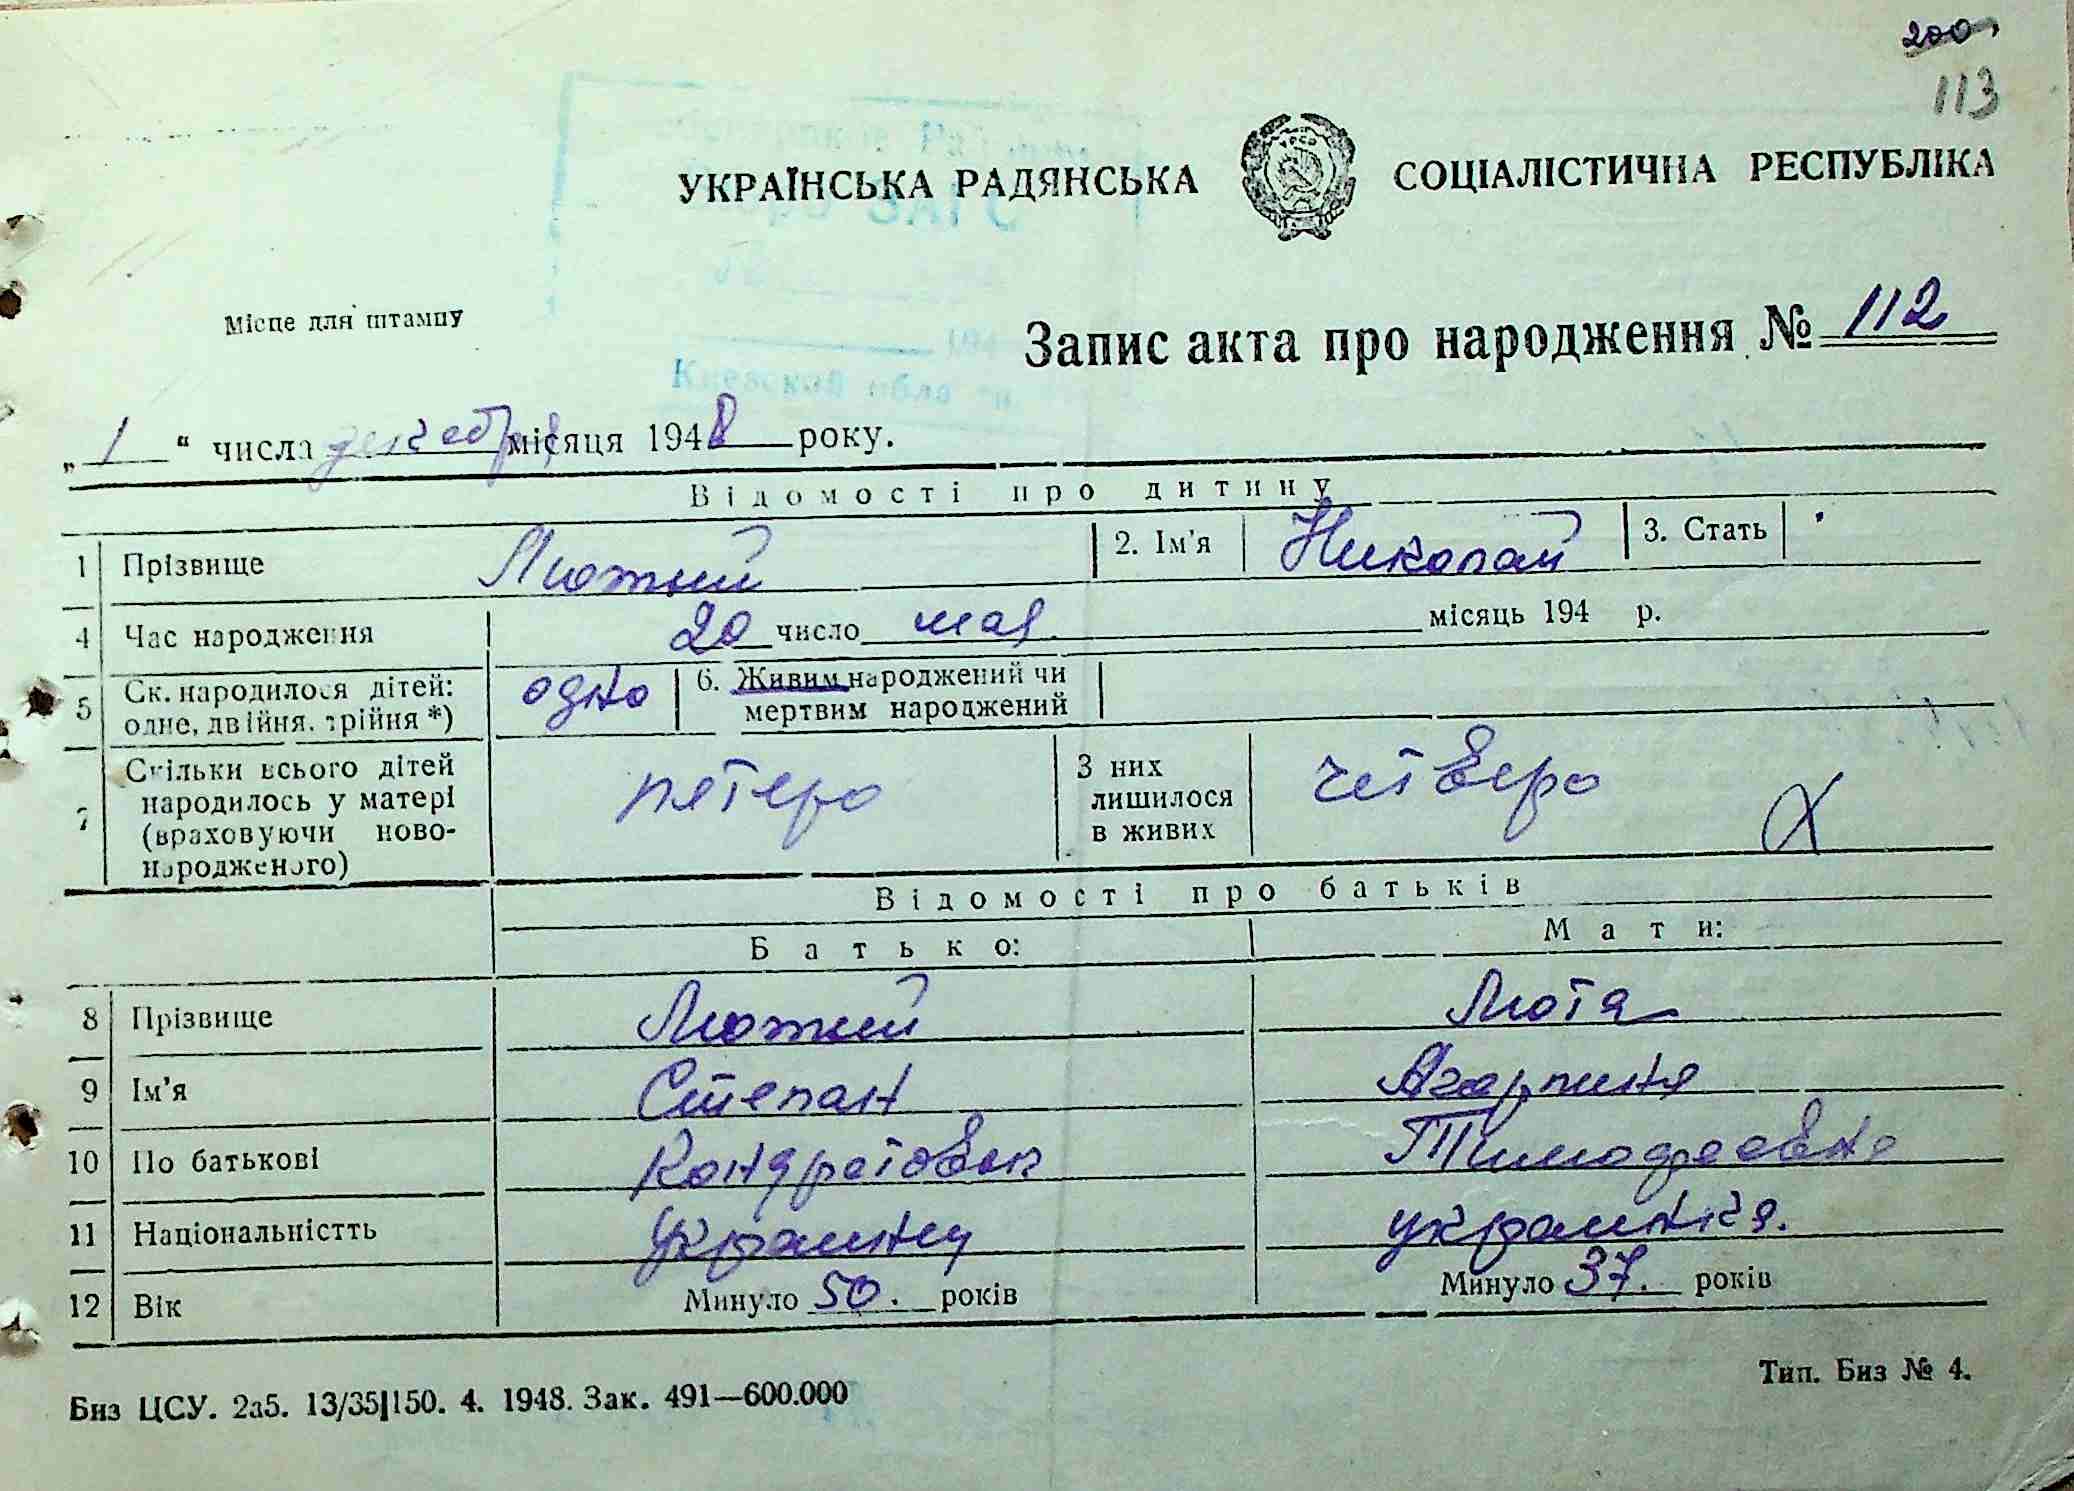 200
113
УКРАЇНСЬКА РАДЯНСЬКА СОЦІАЛІСТИЧНА РЕСПУБЛІКА
ЗАГС
194
Киевской области
Місце для штампу
Запис акта про народження № 112
„ 1 “ числа декабря місяця 1948 року.
Відомості про дитину
1 Прізвище Лютий 2. Ім'я Николай 3. Стать
4 Час народження 20 число мая місяць 194 р.
5 Ск. народилося дітей: одно 6. Живим народжений чи
одне, двійня, трійня *) мертвим народжений
7 Скільки всього дітей пятеро З них четверо
народилось у матері лишилося
(враховуючи ново- в живих
народженого)
Відомості про батьків
Батько: Мати:
8 Прізвище Лютий Люта
9 Ім'я Степан Агарпина
10 По батькові Кондратович Тимофеевна
11 Національністть Украинец украинка.
12 Вік Минуло 50. років Минуло 37. років
Биз ЦСУ. 2а5. 13/35|150. 4. 1948. Зак. 491—600.000
Тип. Биз № 4.